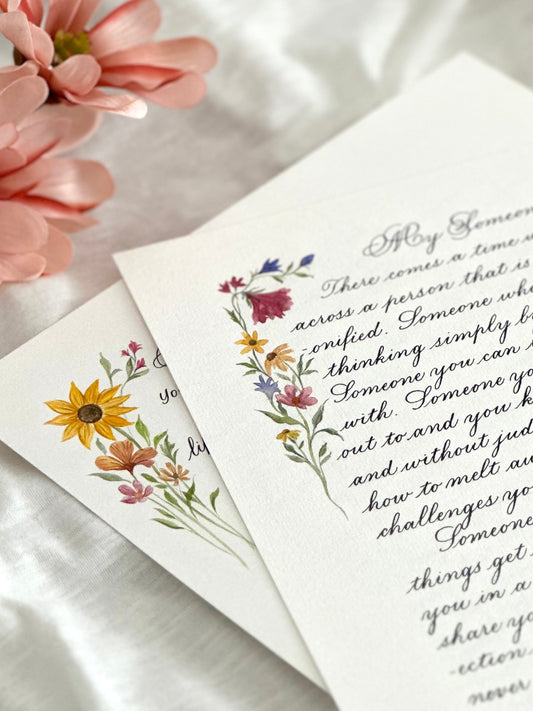 My Someon
There comes a time w
across a person that is
-onified. Someone who
thinking simply b
Someone you can
with. Someone yo
out to and you k
and without jud
how to melt au
challenges yo
Someone
things get
you in a
share yo
-ection
never
yo
li